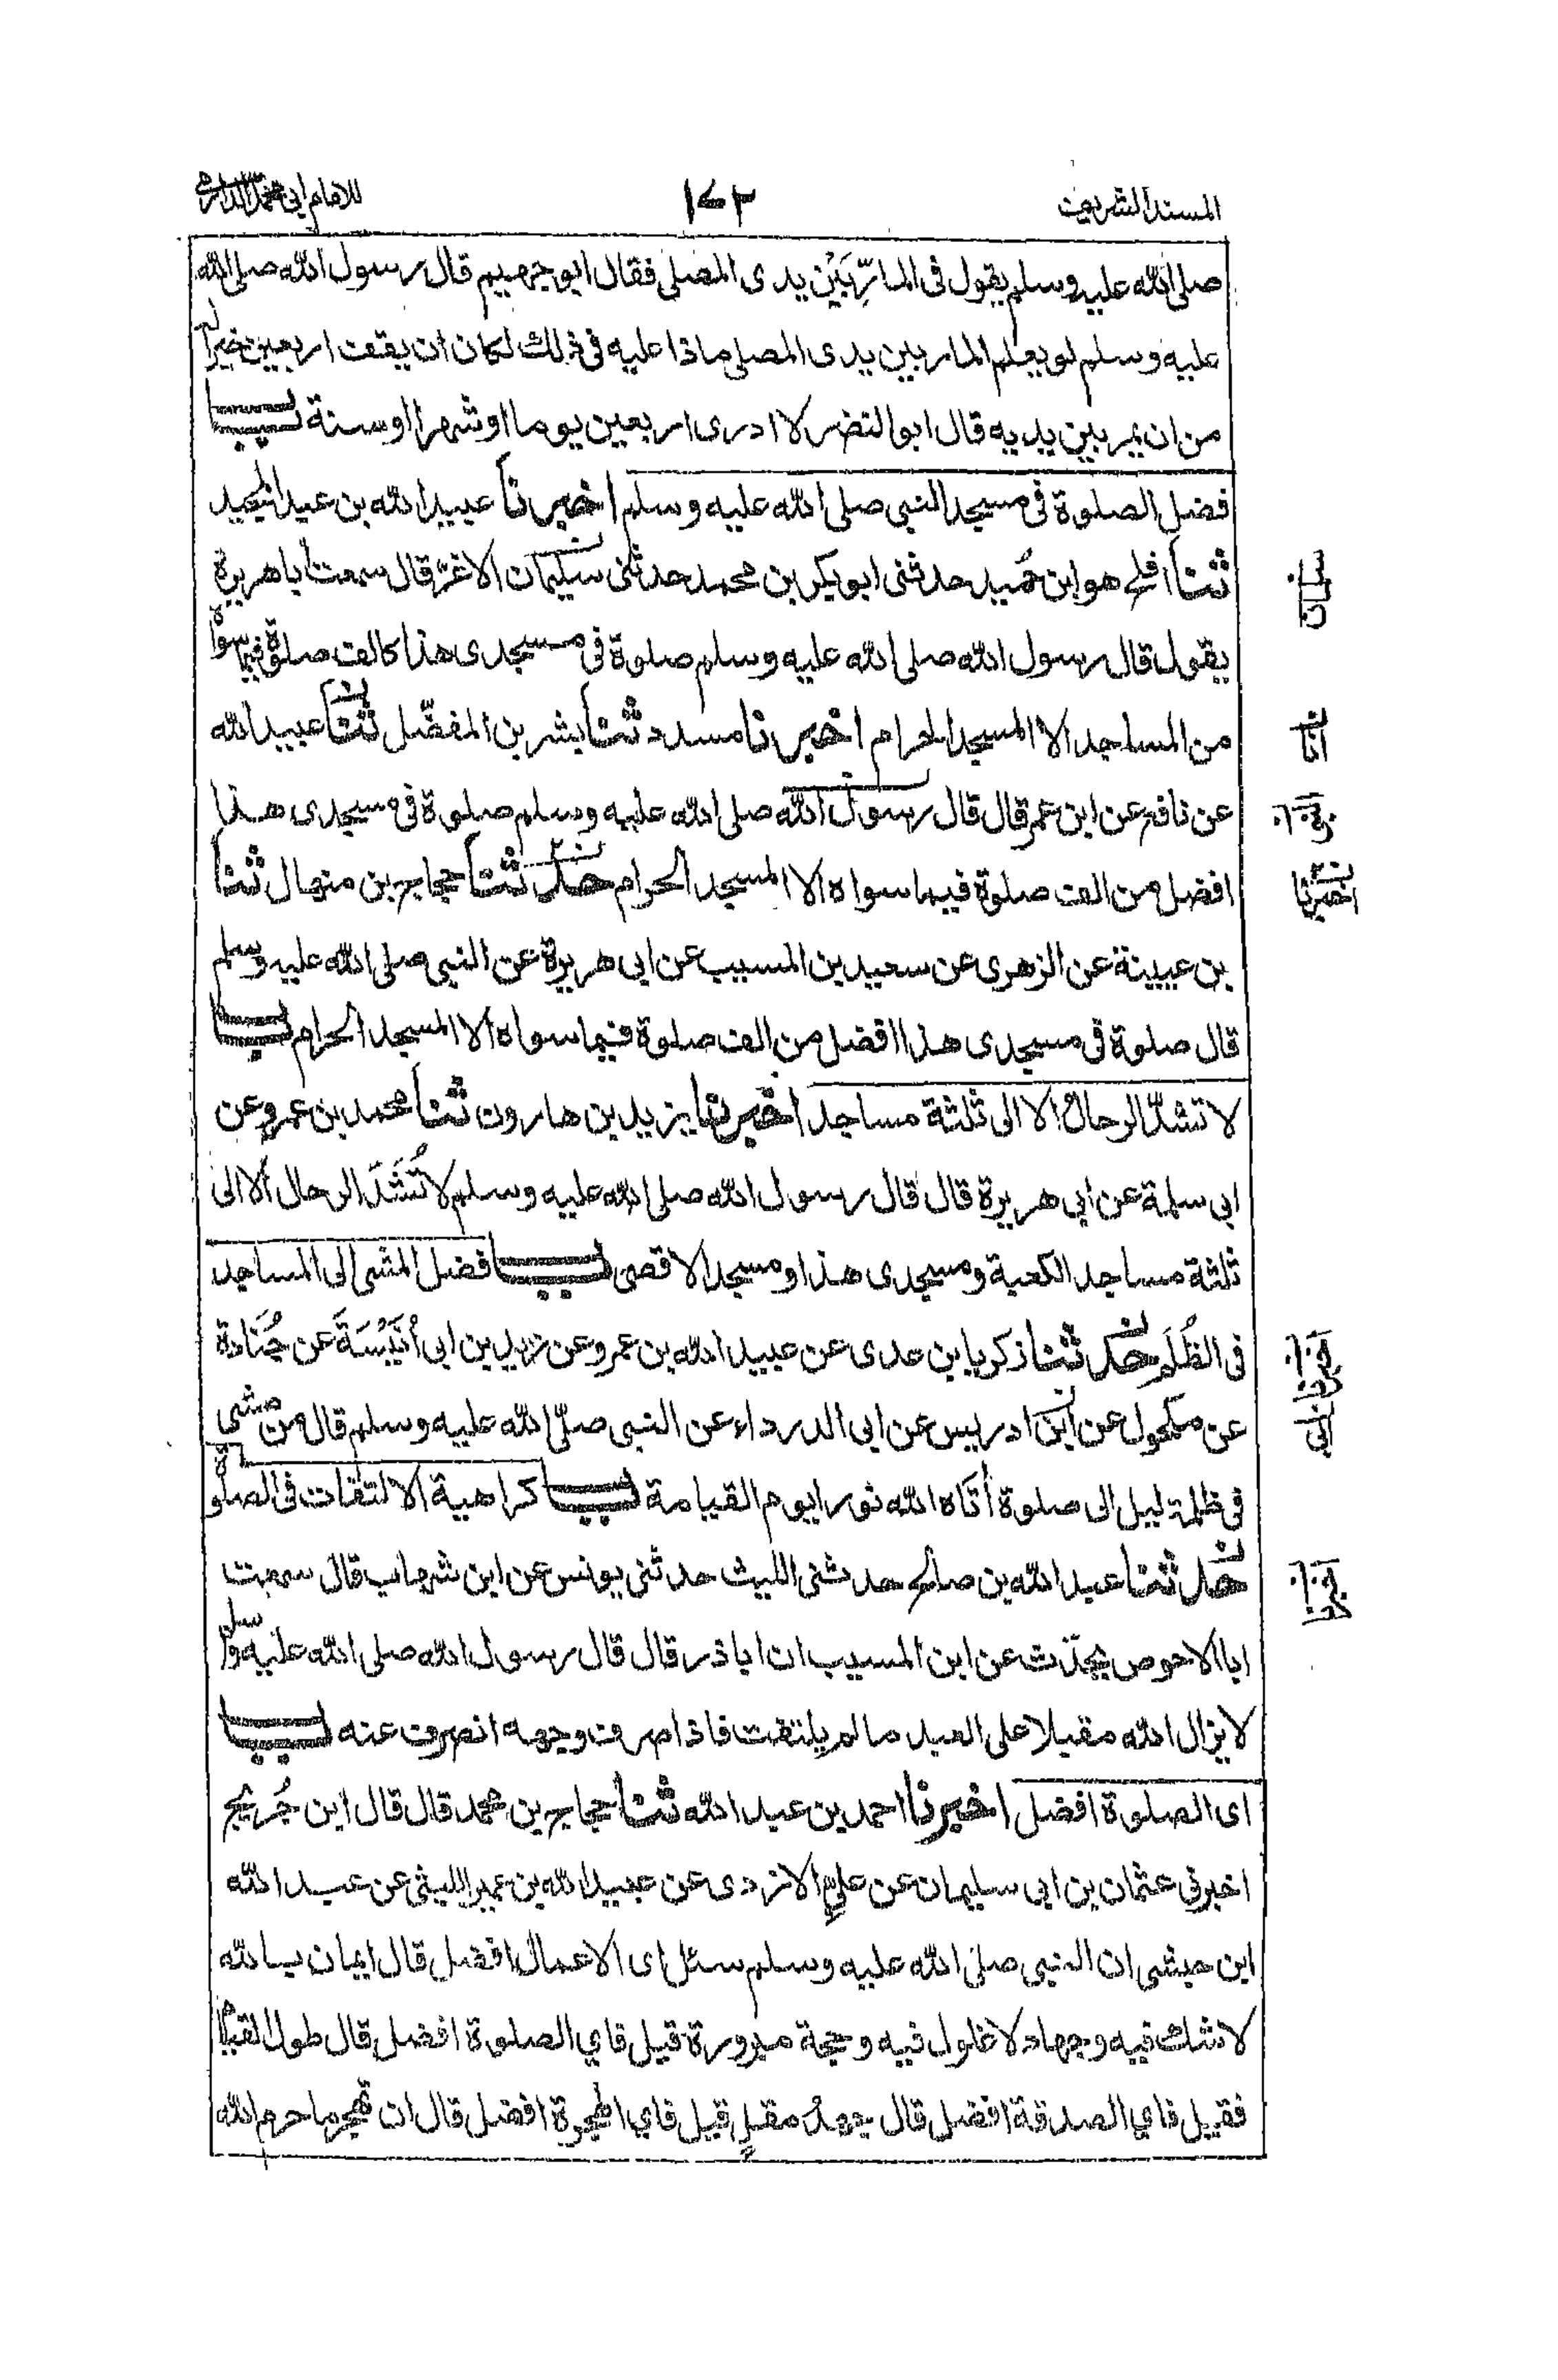 المسند الشريف
١٧٣
للامام ابى محمد الدارمى
صلى الله عليه وسلم يقول فى المارِّ بَيْن يدى المصلى فقال ابو جهيم قال رسول الله صلى الله
عليه وسلم لو يعلم المار بين يدى المصلى ماذا عليه فى ذلك لكان ان يقف اربعين خيرا له
من ان يمر بين يديه قال ابو النضر لا ادرى اربعين يوما او شهرا او سنة باب
فضل الصلوة فى مسجد النبى صلى الله عليه وسلم اخبرنا عبيد الله بن عبد المجيد
ثنا افلح هو ابن حُميد حدثنى ابو بكر بن محمد حدثنى سليمان الاغرّ قال سمعت ابا هريرة
يقول قال رسول الله صلى الله عليه وسلم صلوة فى مسجدى هذا كالف صلوة فيما سواه
من المساجد الا المسجد الحرام اخبرنا مسدد ثنا بشر بن المفضّل ثنا عبيد الله
عن نافع عن ابن عمر قال قال رسول الله صلى الله عليه وسلم صلوة فى مسجدى هذا
افضل من الف صلوة فيما سواه الا المسجد الحرام حدثنا حجاج بن منهال ثنا
بن عيينة عن الزهرى عن سعيد بن المسيب عن ابى هريرة عن النبى صلى الله عليه وسلم
قال صلوة فى مسجدى هذا افضل من الف صلوة فيما سواه الا المسجد الحرام باب
لا تشدّ الرحال الا الى ثلثة مساجد اخبرنا يزيد بن هارون ثنا محمد بن عمرو عن
ابى سلمة عن ابى هريرة قال قال رسول الله صلى الله عليه وسلم لا تُشَدّ الرحال الا الى
ثلثة مساجد الكعبة ومسجدى هذا ومسجد الاقصى باب فضل المشى الى المساجد
فى الظُلَم حدثنا زكريا بن عدى عن عبيد الله بن عمرو عن زيد بن ابى أُنَيْسَةَ عن جُنَادة
عن مكحول عن ابن ادريس عن ابى الدرداء عن النبى صلّى الله عليه وسلم قال من مشى
فى ظلمة ليل الى صلوة أتاه الله نورا يوم القيامة باب كراهية الالتفات فى الصلوة
حدثنا عبد الله بن صالح حدثنى الليث حدثنى يونس عن ابن شهاب قال سمعت
ابا الاحوص يحدّث عن ابن المسيب ان ابا ذر قال قال رسول الله صلى الله عليه وسلم
لا يزال الله مقبلا على العبد ما لم يلتفت فاذا صرف وجهه انصرف عنه باب
اى الصلوة افضل اخبرنا احمد بن عبد الله ثنا حجاج بن محمد قال قال ابن جُريج
اخبرنى عثمان بن ابى سليمان عن علىٍّ الازدى عن عبيد الله بن عمير الليثى عن عبد الله
ابن حبشى ان النبى صلى الله عليه وسلم سئل اى الاعمال افضل قال ايمان بالله
لا شك فيه وجهاد لا غلول فيه وحجة مبرورة قيل فاي الصلوة افضل قال طول القيام
فقيل فاي الصدقة افضل قال جهدُ مقلٍ قيل فاي الهجرة افضل قال ان تهجر ما حرم الله
سلمان
انا
اخبرنا
اخبرنا
اخبرنا